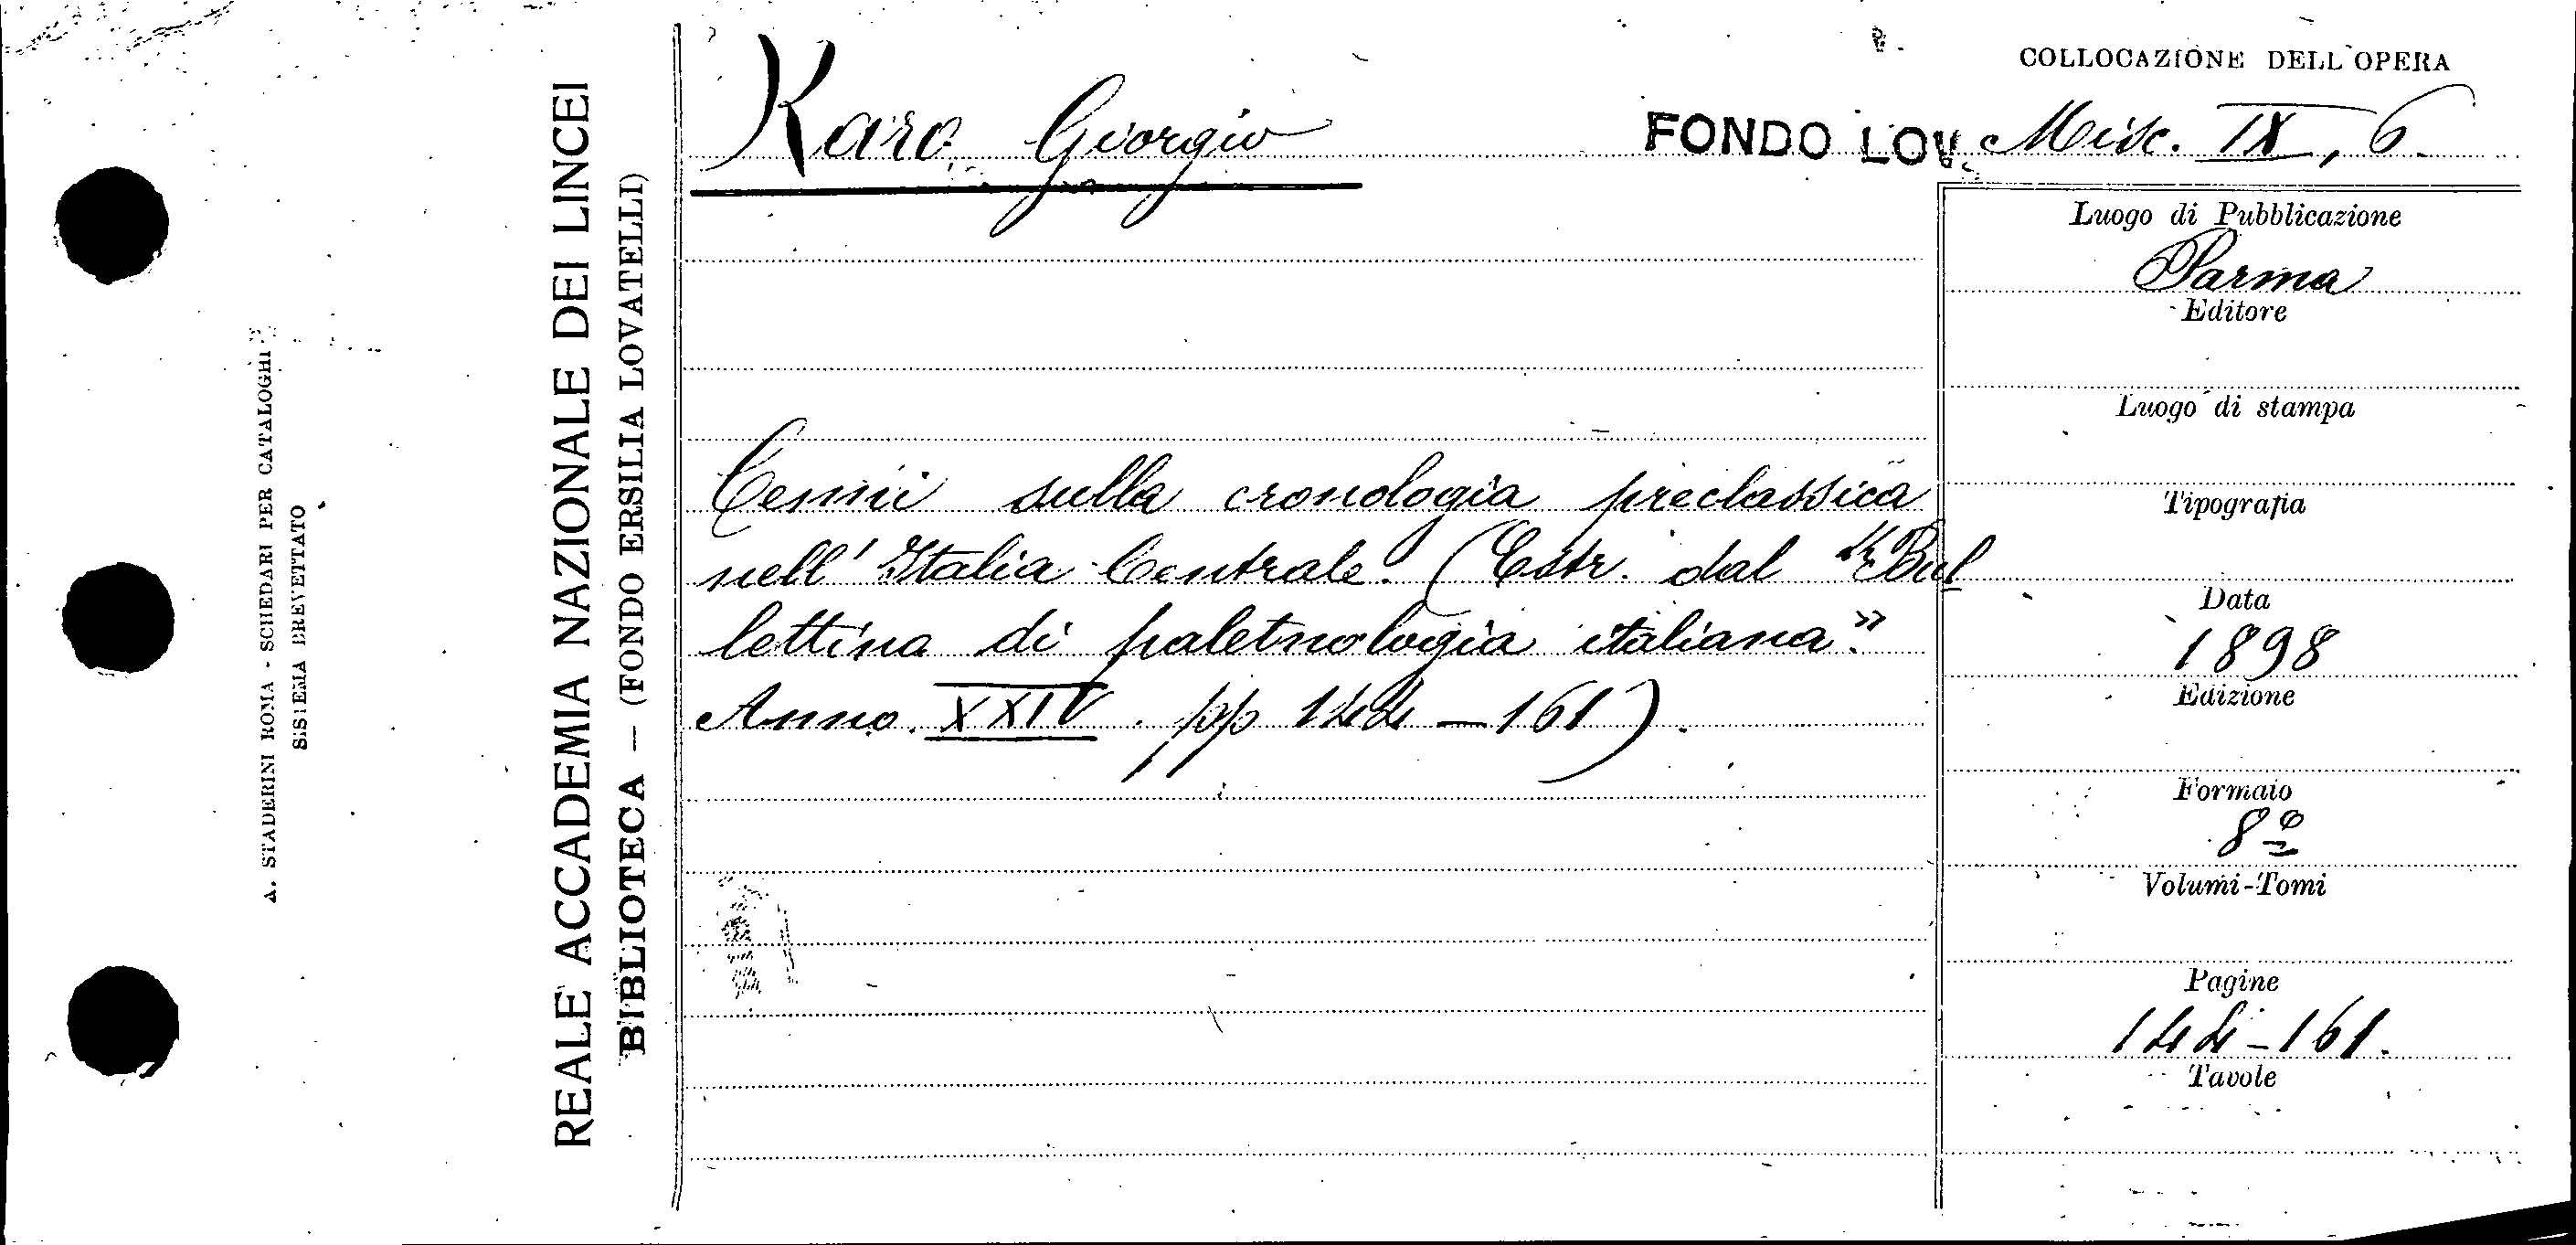 A. STADERINI ROMA - SCHEDARI PER CATALOGHI
SISTEMA BREVETTATO
REALE ACCADEMIA NAZIONALE DEI LINCEI
BIBLIOTECA — (FONDO ERSILIA LOVATELLI)
Karo Giorgio
COLLOCAZIONE DELL'OPERA
FONDO LOV. Misc. IX, 6.
Cenni sulla cronologia preclassica
nell'Italia Centrale. (Estr. dal "Bul
lettina di paletnologia italiana"
Anno XXIV. pp 144-161).
Luogo di Pubblicazione
Parma
Editore
Luogo di stampa
Tipografia
Data
1898
Edizione
Formato
8º
Volumi-Tomi
Pagine
144-161.
Tavole